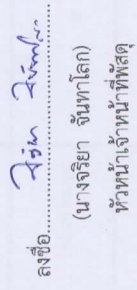 ลงชื่อ
(นางจริยา จันทาโลก)
หัวหน้าเจ้าหน้าที่พัสดุ